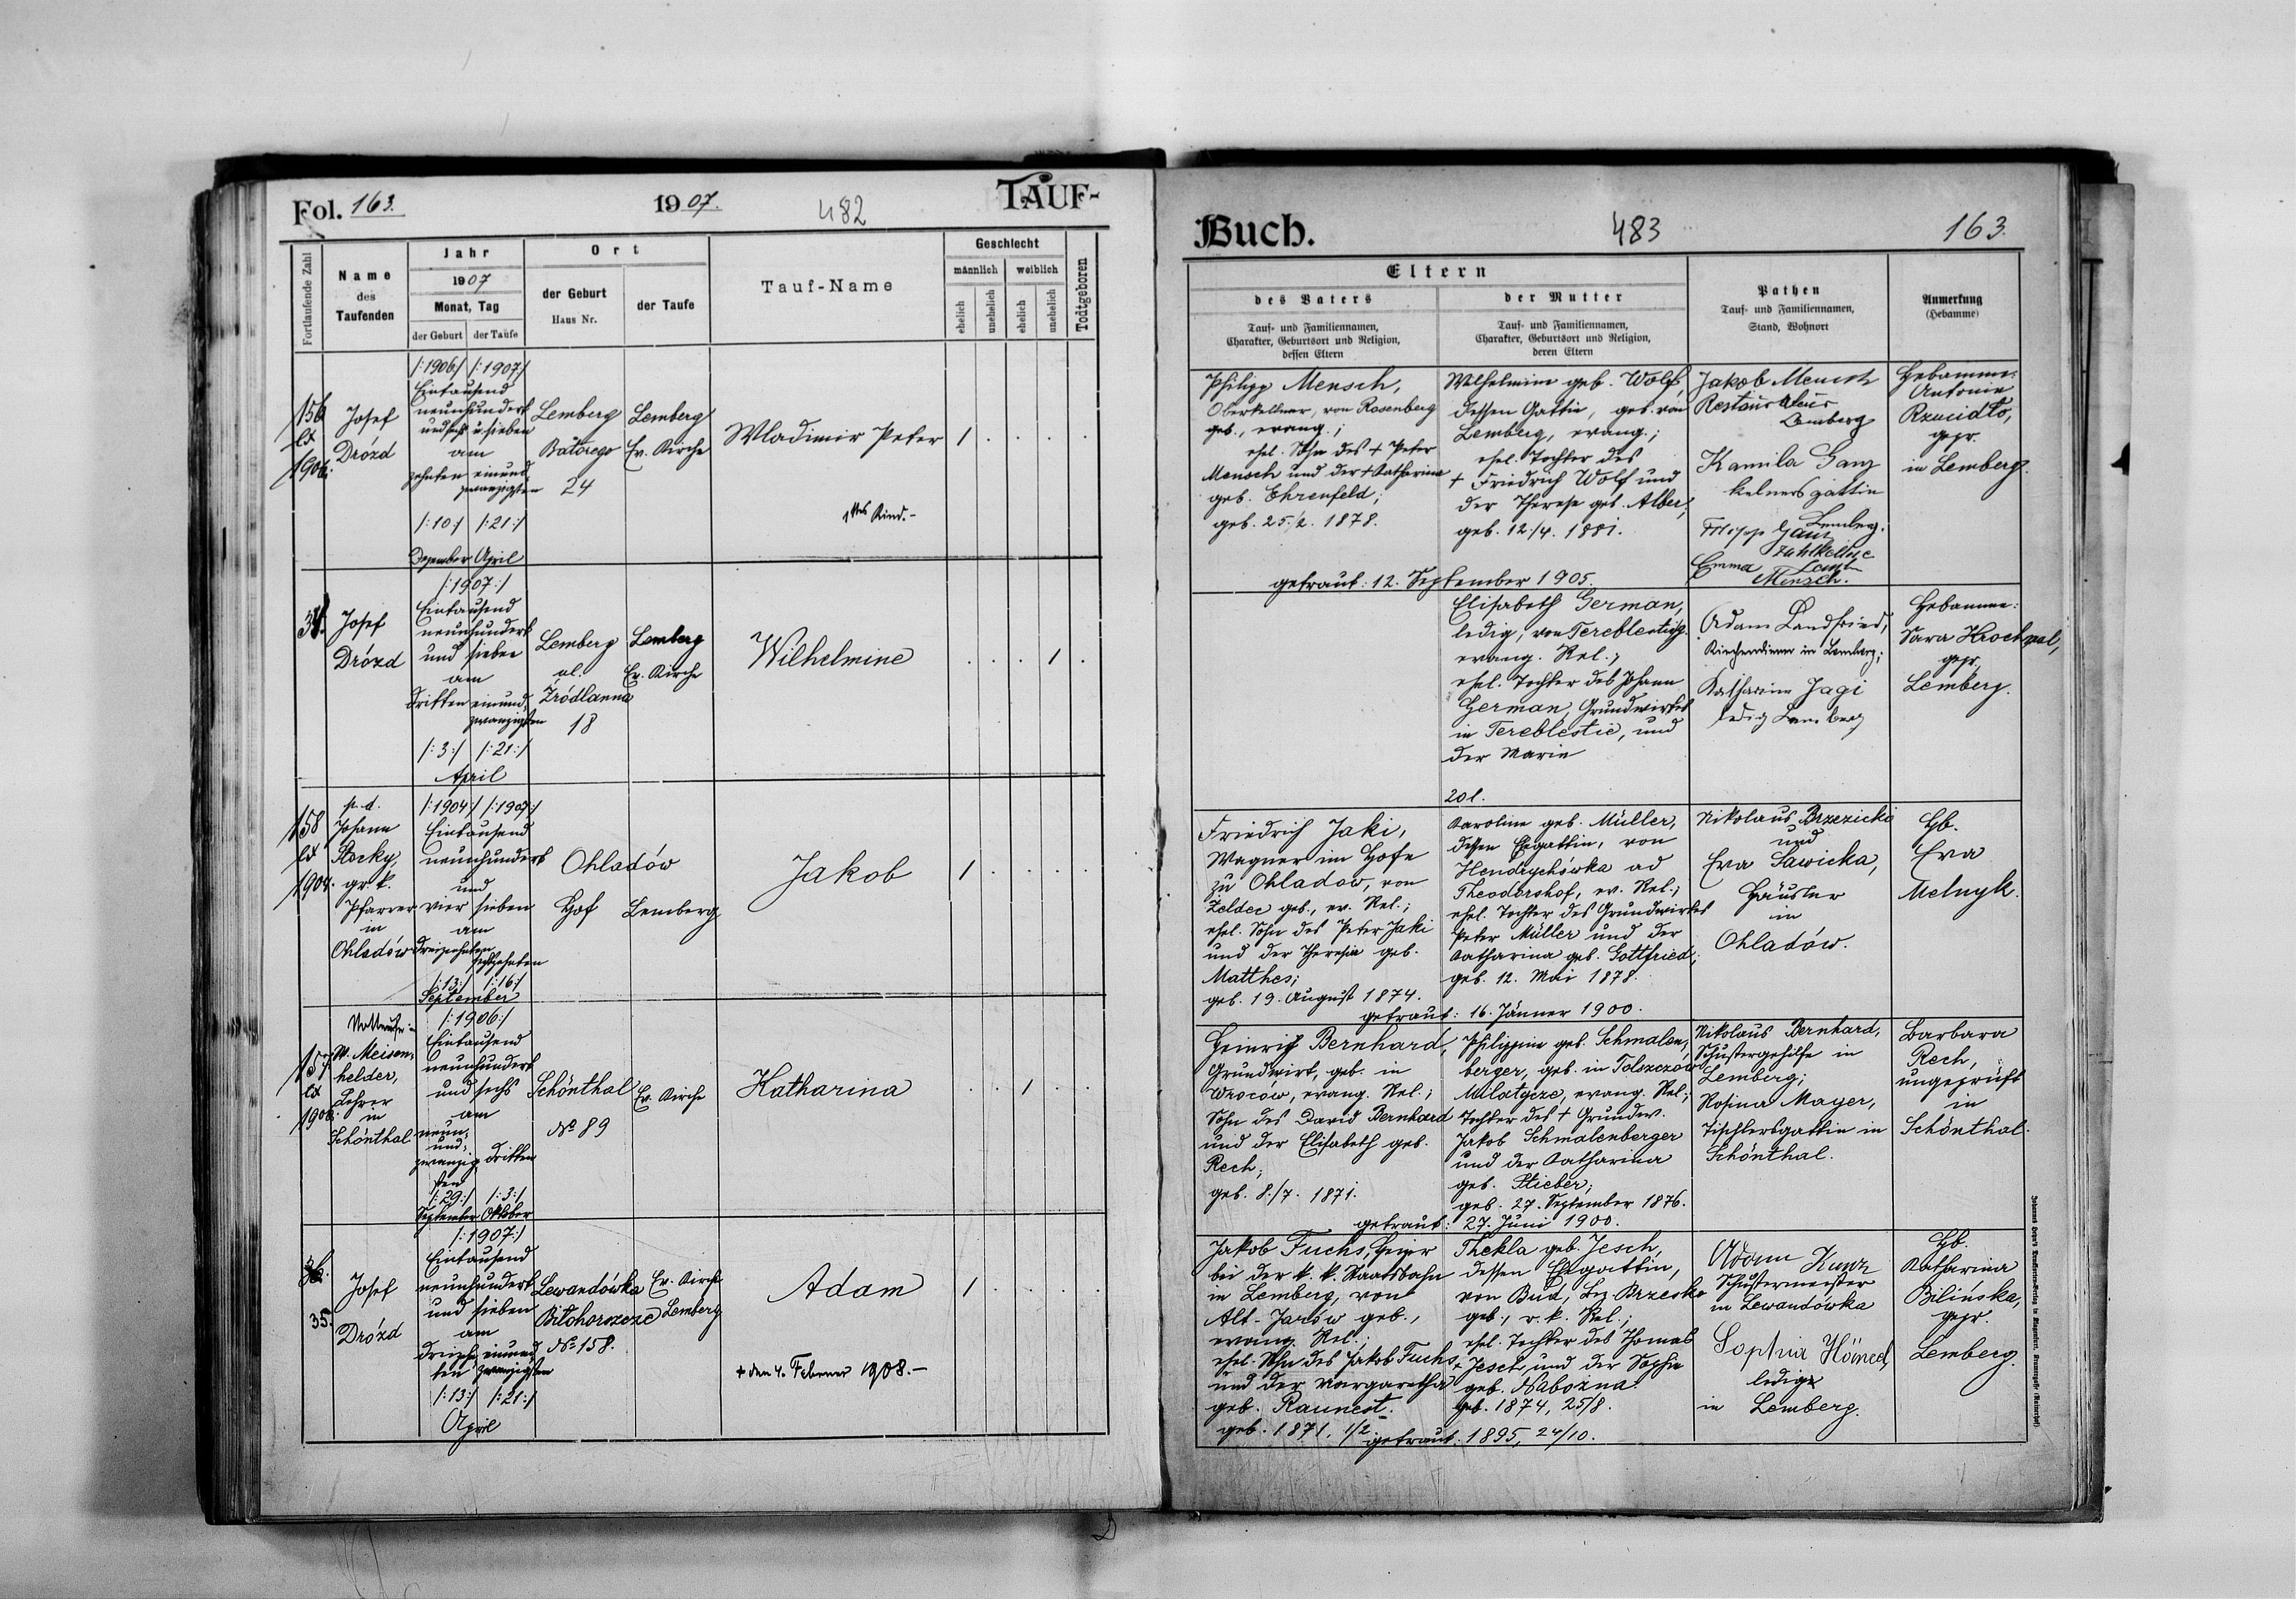 Fol. 163.
1907.
482
TAUF-
Fortlaufende Zahl
Name
des
Taufenden
Jahr
1907
Monat, Tag
der Geburt
der Taufe
Ort
der Geburt
Haus Nr.
der Taufe
Tauf-Name
Geschlecht
männlich
weiblich
ehelich
unehelich
ehelich
unehelich
Todtgeboren
156
ex
1906.
Josef
Drózd
/:1906:/ /:1907:/
Eintausend
neunhundert
und sechs u. sieben
am
zehnten einund-
zwanzigsten
/:10:/ /:21:/
Dezember April
Lemberg
Batorego
24
Lemberg
Ev. Kirche
Wladimir Peter
1
1tes Kind.-
34.
Josef
Drózd
/:1907:/
Eintausend
neunhundert
und sieben
am
dritten einund-
zwanzigsten
/:3:/ /:21:/
April
Lemberg
ul.
Źródlanna
18
Lemberg
Ev. Kirche
Wilhelmine
1
158
ex
1904.
p. d.
Johann
Stocky,
gr. k.
Pfarrer
in
Ohladów
/:1904:/ /:1907:/
Eintausend
neunhundert
und
vier sieben
am
dreizehnten
sechzehnten
/:13:/ /:16:/
September
Ohladów
Hof
Lemberg
Jakob
1
157
ex
1906.
Nottaufe
W. Meisen-
helder,
Lehrer
in
Schönthal
/:1906:/
Eintausend
neunhundert
und sechs
am
neun-
und-
zwanzig dritten
sten
/:29:/ /:3:/
September Oktober
Schönthal
No 89
Ev. Kirche
Katharina
1
35.
Josef
Drózd
/:1907:/
Eintausend
neunhundert
und sieben
am
dreizehn einund
ten zwanzigsten
/:13:/ /:21:/
April
Lewandówka
Biłohorszcze
No 158.
Ev. Kirche
Lemberg
Adam
1
+ den 4. Februar 1908.-
Buch.
483
163.
Eltern
des Vaters
Tauf- und Familiennamen,
Charakter, Geburtsort und Religion,
dessen Eltern
der Mutter
Tauf- und Familiennamen,
Charakter, Geburtsort und Religion,
deren Eltern
Pathen
Tauf- und Familiennamen,
Stand, Wohnort
Anmerkung
(Hebamme)
Philipp Mensch,
Oberkellner, von Rosenberg
geb., evang.;
ehel. Sohn des + Peter
Mensch und der + Katharina
geb. Ehrenfeld;
geb. 25./2. 1878.
Wilhelmine geb. Wolf,
dessen Gattin, geb. von
Lemberg, evang.;
ehel. Tochter des
+ Friedrich Wolf und
der Therese geb. Alber;
geb. 12./4. 1881.
Jakob Mensch
Restaurateur
Lemberg
Kamila Ganz
Kelnersgattin
Lemberg.
Filipp Ganz
Zahlkellner
Emma
Mensch.
Hebamme:
Antonie
Rzucidło,
gepr.
in Lemberg.
getraut: 12. September 1905.
Elisabeth German,
ledig, von Tereblestie,
evang. Rel.;
ehel. Tochter des Johann
German, Grundwirtes
in Tereblestie, und
der Marie
20 l.
Adam Landfried,
Kirchendiener in Lemberg;
Katharine Jagi
ledig Lemberg
Hebamme:
Sara Krochmal,
gepr.,
Lemberg.
Friedrich Jaki,
Wagner im Hofe
zu Ohladow, von
Zeldec geb., ev. Rel.;
ehel. Sohn des Peter Jaki
und der Theresia geb.
Matthes;
geb. 19. August 1874.
Karoline geb. Müller,
dessen Ehgattin, von
Hendrychówka ad
Theodorshof, ev. Rel.;
ehel. Tochter des Grundwirtes
Peter Müller und der
Katharina geb. Gottfried;
geb. 12. Mai 1878.
Nikolaus Brzezicki
und
Eva Sawicka,
Häusler
in
Ohladów.
Hb.
Eva
Melnyk.
getraut: 16. Jänner 1900.
Heinrich Bernhard,
Grundwirt, geb. in
Wroców, evang. Rel.;
Sohn des David Bernhard
und der Elisabeth geb.
Rech;
geb. 8./7. 1871.
Philippine geb. Schmalen-
berger, geb. in Tolszczów
Milatycze, evang. Rel.;
Tochter des + Grundw.
Jakob Schmalenberger
und der Katharina
geb. Stieber;
geb. 27. September 1876.
Nikolaus Bernhard,
Schustergehilfe in
Lemberg;
Rosina Mayer,
Tischlersgattin in
Schönthal.
Barbara
Rech,
ungeprüft
in
Schönthal.
getraut: 27. Juni 1900.
Jakob Fuchs, Heizer
bei der k. k. Staatsbahn
in Lemberg, von
Alt-Jarów geb.,
evang. Rel.;
ehel. Sohn des Jakob Fuchs
und der Margaretha
geb. Raunest.
geb. 1871, 1/2
Thekla geb. Jesch,
dessen Ehgattin,
von Bud, Bez. Brzesko
geb., r. k. Rel.,
ehel. Tochter des Thomas
Jesch und der Sophie
geb. Nabożna.
geb. 1874, 25/8.
Adam Kunz
Schustermeister
in Lewandówka
Sophia
ledige
in Lemberg.
Hb.
Katharina
Bilińska,
gepr.
Lemberg.
getraut: 1895, 24/10.